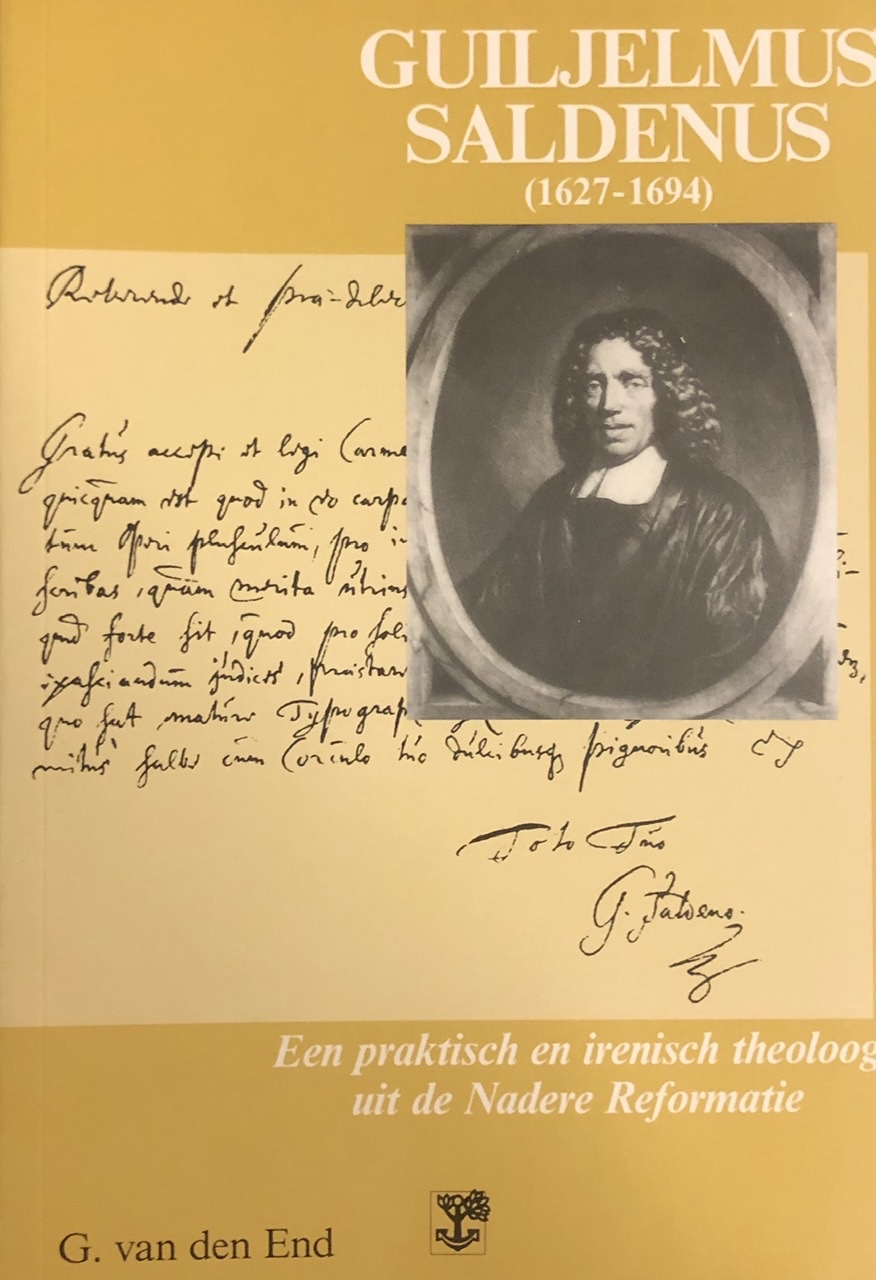 GUILJELMUS
SALDENUS
(1627-1694)
Reverende et
Gratus accepi et legi Carme
quicquam est quod in eo carp
tum Operi plusculum, pro
scribas, quam merita
quod forte sit, quod pro soli
judices,
quo sat mature Typograp
salve cum Corculo tuo dulcibusq pignoribus
Toto Tuo
G. Saldeno.
Een praktisch en irenisch theoloog
uit de Nadere Reformatie
G. van den End